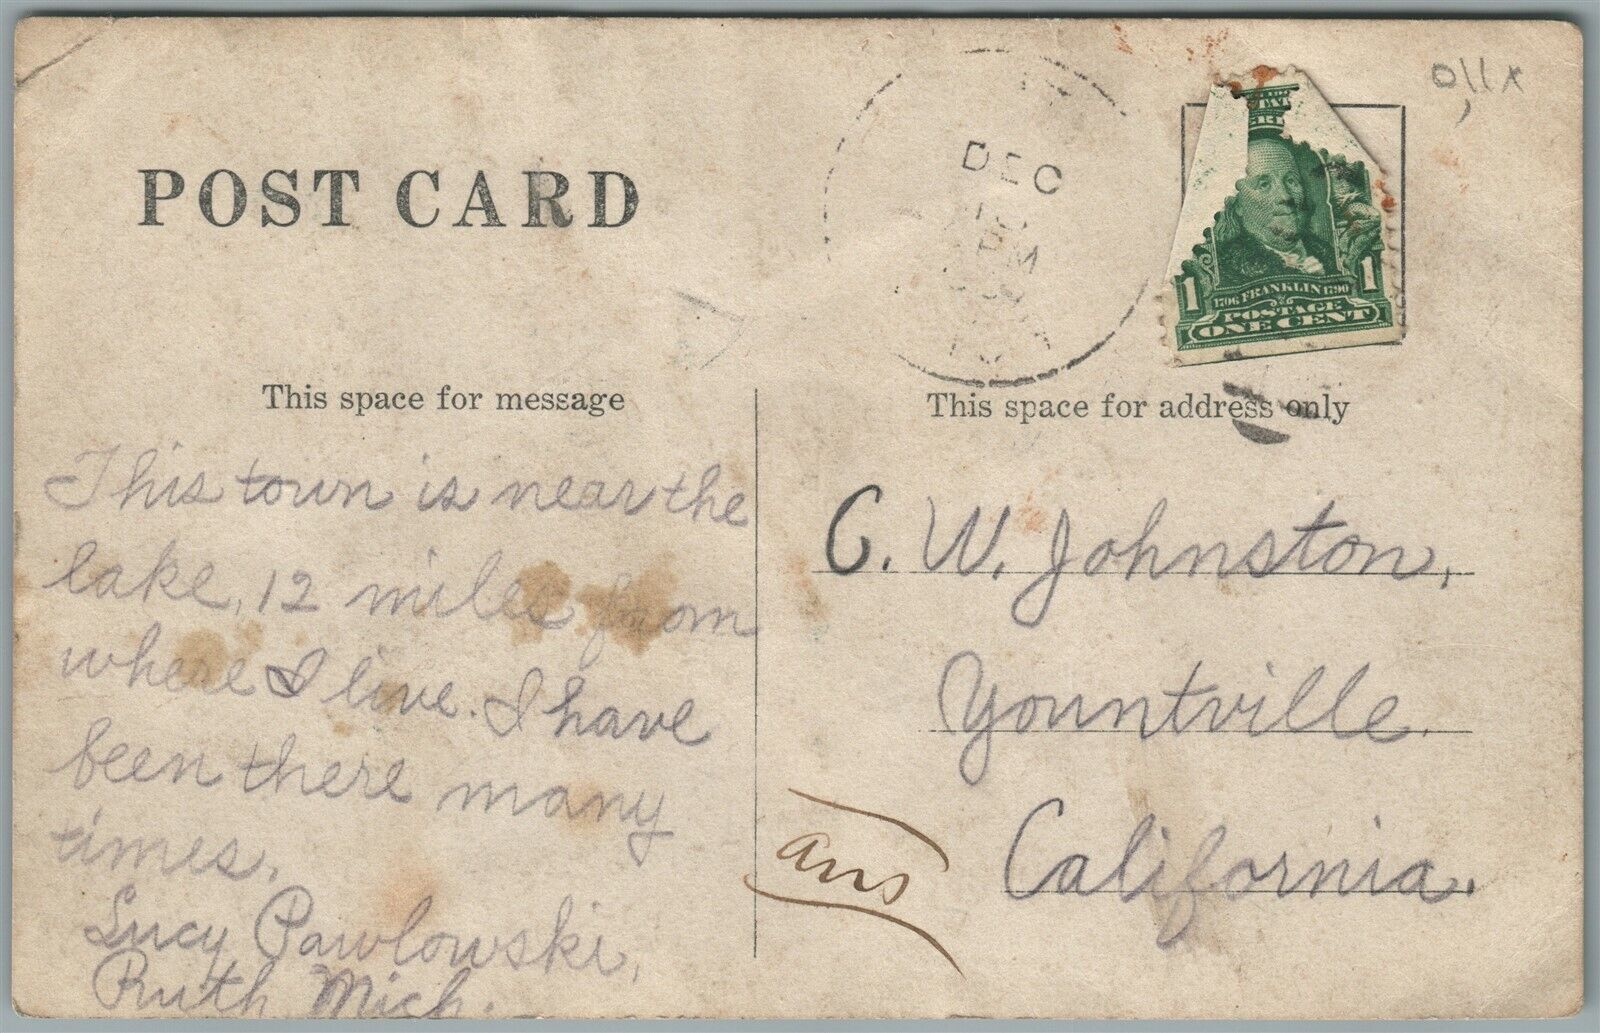 POST CARD
DEC
PM
1 1
1706 FRANKLIN 1790
POSTAGE
ONE CENT
This space for message
This space for address only
This town is near the
lake, 12 miles from
where I live. I have
been there many
times.
Lucy Pawlowski,
Ruth Mich.
C. W. Johnston,
Yountville.
California.
ans